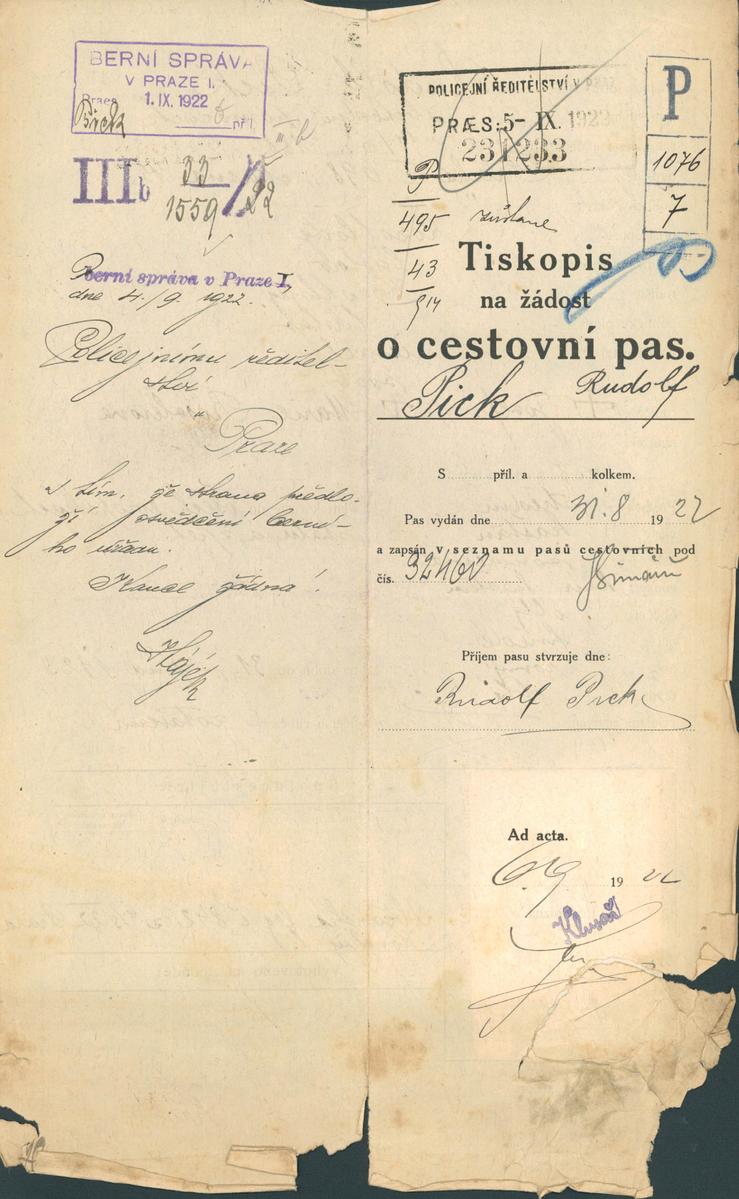 BERNÍ SPRÁVA
V PRAZE I.
Praes. 1. IX. 1922
příl.
IIIb 33/1559 /22
berní správa v Praze I.
dne 4./9. 1922.
Policejnímu ředitel-
ství
v
Praze
s tím, že strana předlo-
ží osvědčení berní-
ho úřadu.
Kauce žádná!
Hájek
POLICEJNÍ ŘEDITELSTVÍ V
PRÆS: 5- IX. 1922
231233
P
1076
7
P
495
43
914
Tiskopis
na žádost
o cestovní pas.
Pick Rudolf
S příl. a kolkem.
Pas vydán dne 31.8 1922
a zapsán v seznamu pasů cestovních pod
čís. 32460
Příjem pasu stvrzuje dne:
Rudolf Pick
Ad acta.
6/9 1922